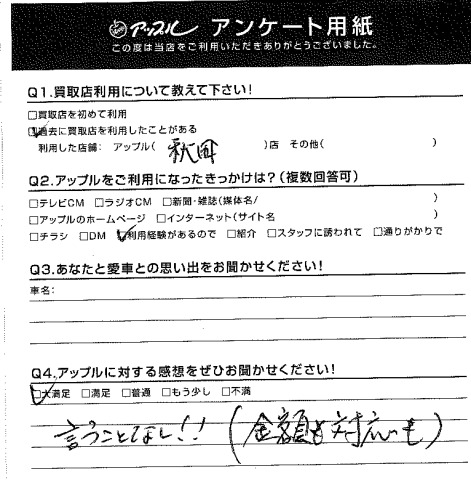 アップル アンケート用紙
この度は当店をご利用いただきありがとうございました。
Q1.買取店利用について教えて下さい!
□買取店を初めて利用
☑過去に買取店を利用したことがある
利用した店舗: アップル( 秋田 )店 その他( )
Q2.アップルをご利用になったきっかけは?(複数回答可)
□テレビCM □ラジオCM □新聞・雑誌(媒体名/ )
□アップルのホームページ □インターネット(サイト名 )
□チラシ □DM ☑利用経験があるので □紹介 □スタッフに誘われて □通りがかりで
Q3.あなたと愛車との思い出をお聞かせください!
車名:
Q4.アップルに対する感想をぜひお聞かせください!
☑大満足 □満足 □普通 □もう少し □不満
言うことなし!! (金額も対応も)